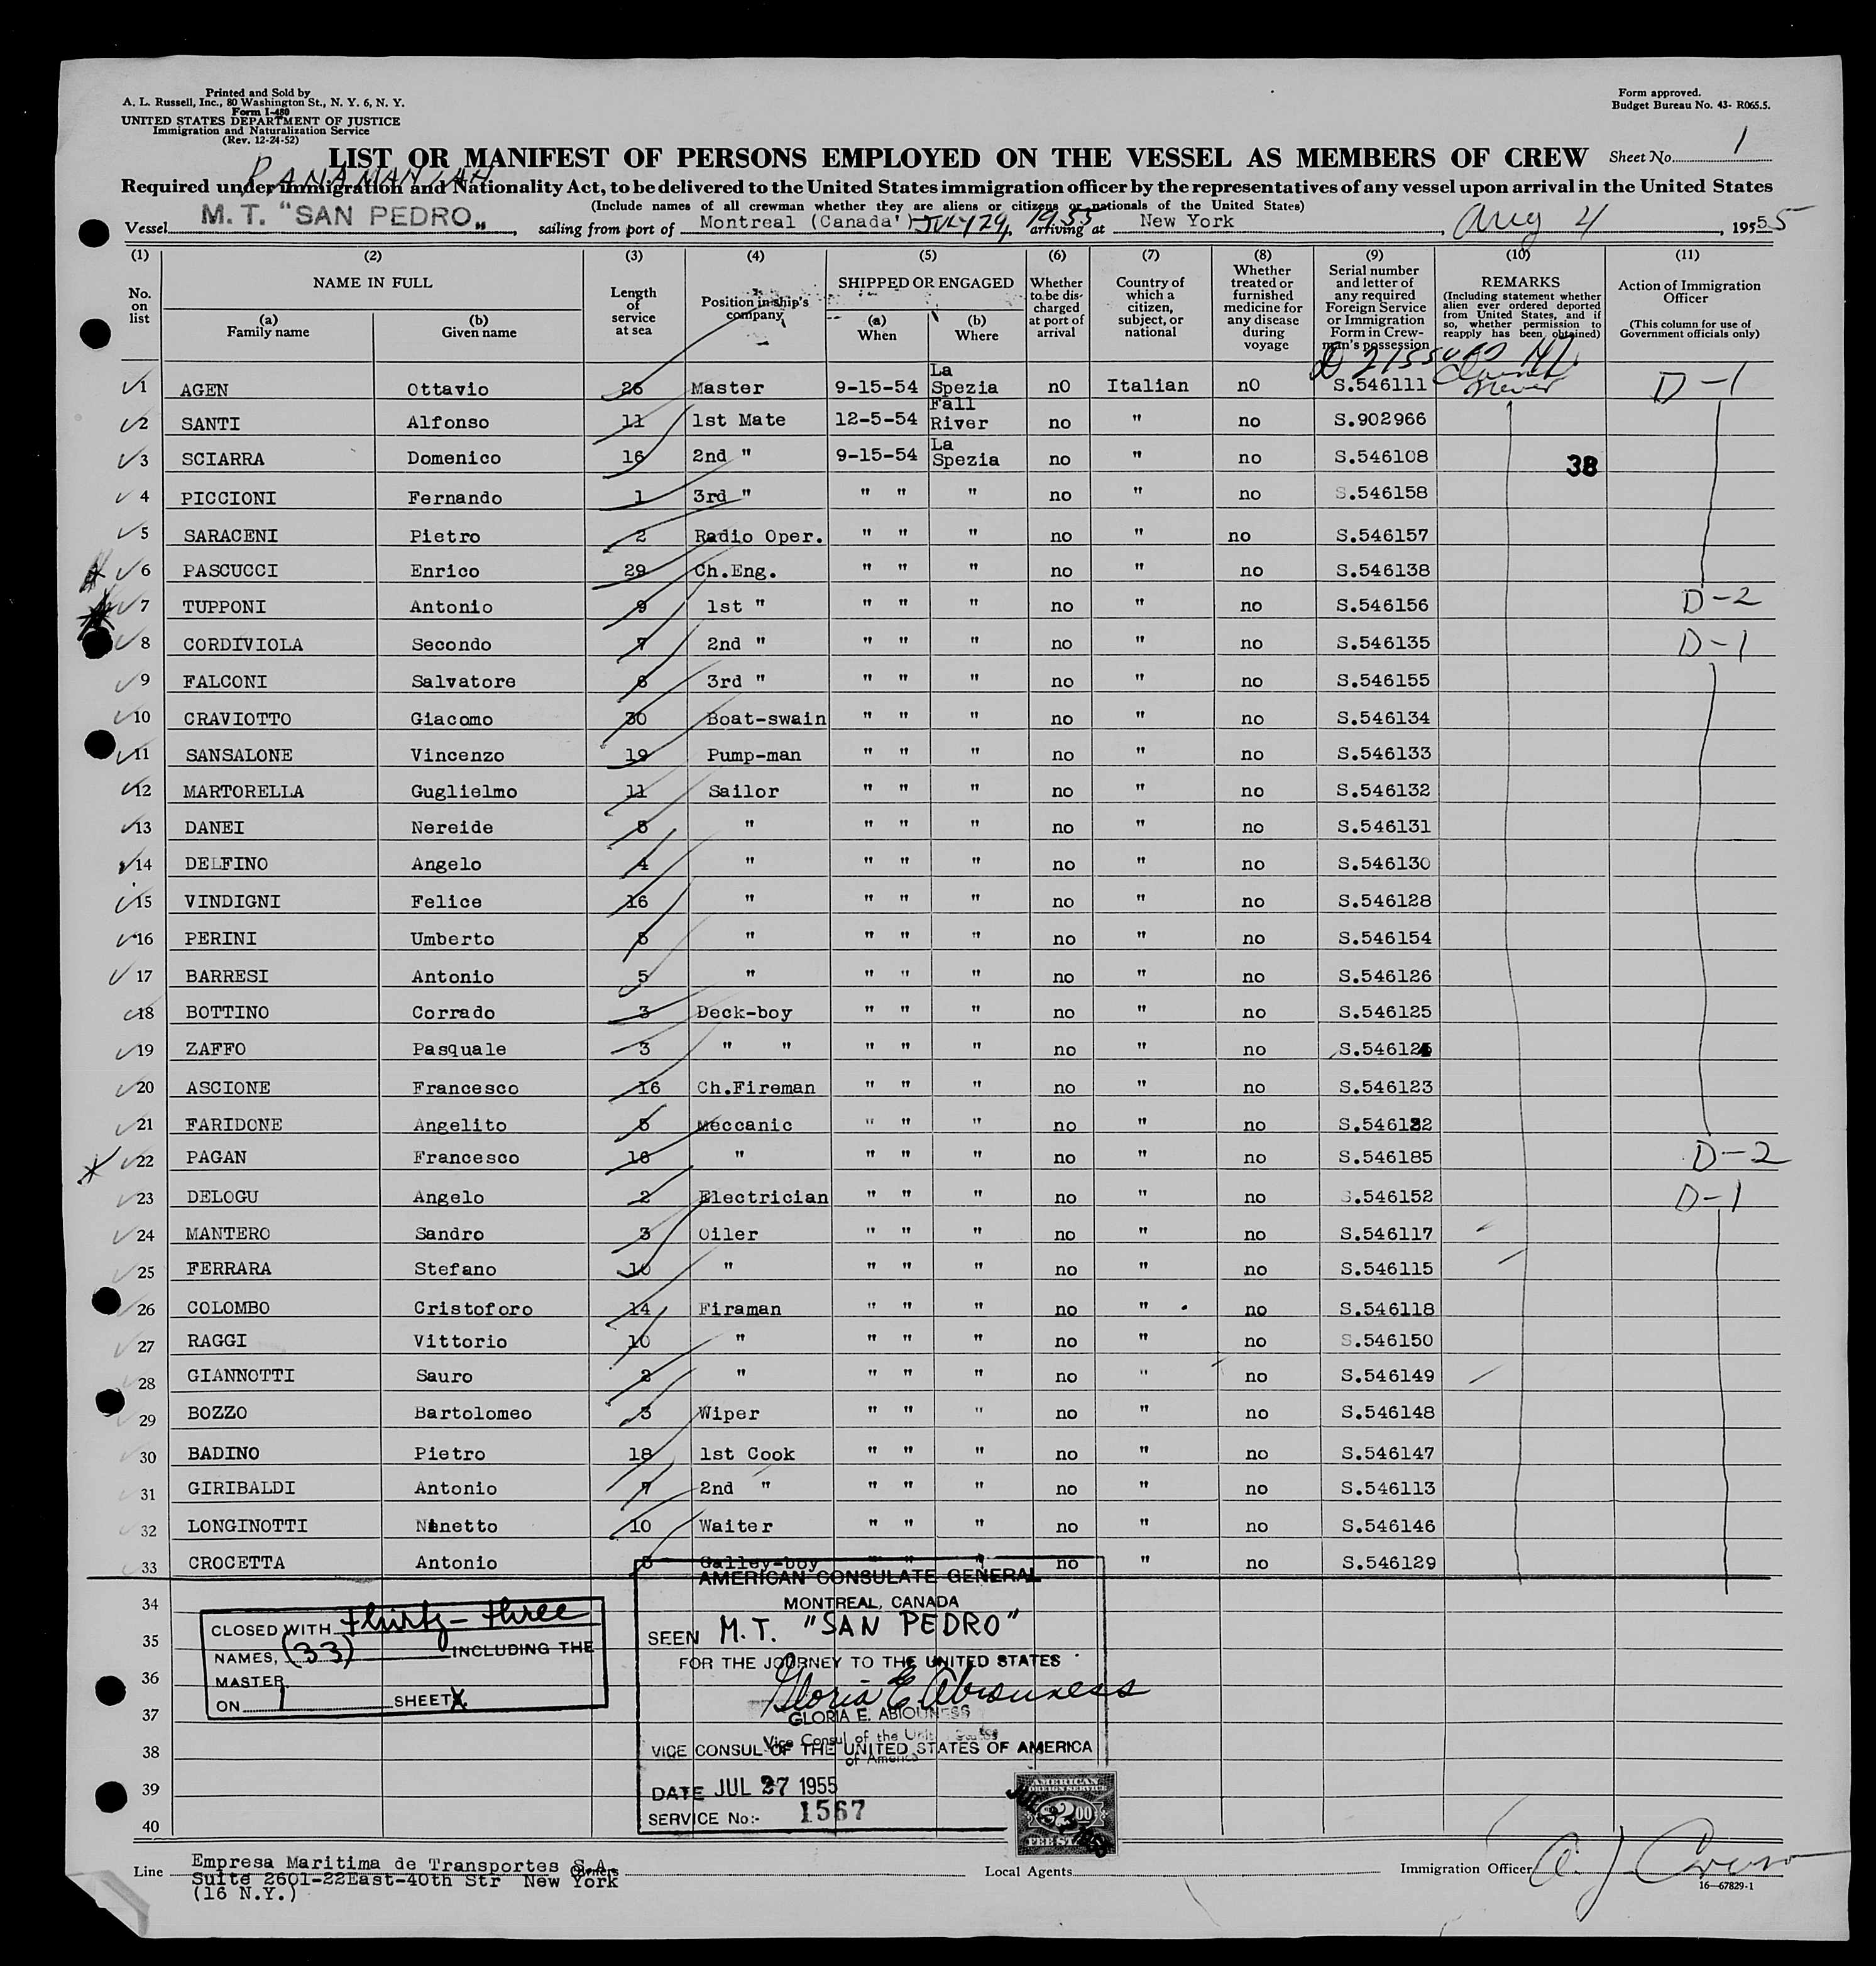 Printed and Sold by
A. L. Russell, Inc., 80 Washington St., N. Y. 6, N. Y.
Form I-480
UNITED STATES DEPARTMENT OF JUSTICE
Immigration and Naturalization Service
(Rev. 12-24-52)
Form approved.
Budget Bureau No. 43- R065.5.
LIST OR MANIFEST OF PERSONS EMPLOYED ON THE VESSEL AS MEMBERS OF CREW
Sheet No. 1
PANAMANIAN
Required under immigration and Nationality Act, to be delivered to the United States immigration officer by the representatives of any vessel upon arrival in the United States
(Include names of all crewman whether they are aliens or citizens or nationals of the United States)
Vessel M. T. "SAN PEDRO„, sailing from port of Montreal (Canada') JULY 29, 1955 arriving at New York, Aug 4, 1955 5
(1) (2) (3) (4) (5) (6) (7) (8) (9) (10) (11)
No. on list
NAME IN FULL
(a) Family name
(b) Given name
Length of service at sea
Position in ship's company
SHIPPED OR ENGAGED
(a) When
(b) Where
Whether to be discharged at port of arrival
Country of which a citizen, subject, or national
Whether treated or furnished medicine for any disease during voyage
Serial number and letter of any required Foreign Service or Immigration Form in Crewman's possession
REMARKS
(Including statement whether alien ever ordered deported from United States, and if so, whether permission to reapply has been obtained)
Action of Immigration Officer
(This column for use of Government officials only)
1 AGEN Ottavio 26 Master 9-15-54 La Spezia nO Italian nO S.546111 never D-1
2 SANTI Alfonso 11 1st Mate 12-5-54 Fall River no " no S.902966
3 SCIARRA Domenico 16 2nd " 9-15-54 La Spezia no " no S.546108 38
4 PICCIONI Fernando 1 3rd " " " " no " no S.546158
5 SARACENI Pietro 2 Radio Oper. " " " no " no S.546157
6 PASCUCCI Enrico 29 Ch.Eng. " " " no " no S.546138
7 TUPPONI Antonio 9 1st " " " " no " no S.546156 D-2
8 CORDIVIOLA Secondo 7 2nd " " " " no " no S.546135 D-1
9 FALCONI Salvatore 6 3rd " " " " no " no S.546155
10 CRAVIOTTO Giacomo 30 Boat-swain " " " no " no S.546134
11 SANSALONE Vincenzo 19 Pump-man " " " no " no S.546133
12 MARTORELLA Guglielmo 11 Sailor " " " no " no S.546132
13 DANEI Nereide 5 " " " " no " no S.546131
14 DELFINO Angelo 4 " " " " no " no S.546130
15 VINDIGNI Felice 16 " " " " no " no S.546128
16 PERINI Umberto 5 " " " " no " no S.546154
17 BARRESI Antonio 5 " " " " no " no S.546126
18 BOTTINO Corrado 3 Deck-boy " " " no " no S.546125
19 ZAFFO Pasquale 3 " " " " " no " no S.546124
20 ASCIONE Francesco 16 Ch.Fireman " " " no " no S.546123
21 FARIDONE Angelito 5 Meccanic " " " no " no S.546122
22 PAGAN Francesco 16 " " " " no " no S.546185 D-2
23 DELOGU Angelo 2 Electrician " " " no " no S.546152 D-1
24 MANTERO Sandro 3 Oiler " " " no " no S.546117
25 FERRARA Stefano 10 " " " " no " no S.546115
26 COLOMBO Cristoforo 14 Firaman " " " no " no S.546118
27 RAGGI Vittorio 10 " " " " no " no S.546150
28 GIANNOTTI Sauro 2 " " " " no " no S.546149
29 BOZZO Bartolomeo 3 Wiper " " " no " no S.546148
30 BADINO Pietro 18 1st Cook " " " no " no S.546147
31 GIRIBALDI Antonio 7 2nd " " " " no " no S.546113
32 LONGINOTTI Ninetto 10 Waiter " " " no " no S.546146
33 CROCETTA Antonio 5 Galley-boy " " " no " no S.546129
34
35
36
37
38
39
40
CLOSED WITH thirty-three
NAMES, (33) INCLUDING THE
MASTER
ON 1 SHEET
AMERICAN CONSULATE GENERAL
MONTREAL, CANADA
SEEN M.T. "SAN PEDRO"
FOR THE JOURNEY TO THE UNITED STATES
Gloria E. Abiouness
GLORIA E. ABIOUNESS
Vice Consul of the United States
of America
VICE CONSUL OF THE UNITED STATES OF AMERICA
DATE JUL 27 1955
SERVICE No:- 1567
AMERICAN
FOREIGN SERVICE
$2.00
FEE STAMP
Line Empresa Maritima de Transportes S.A. Owners
Suite 2601-22East-40th Str New York
(16 N.Y.)
Local Agents
Immigration Officer
16-67829-1